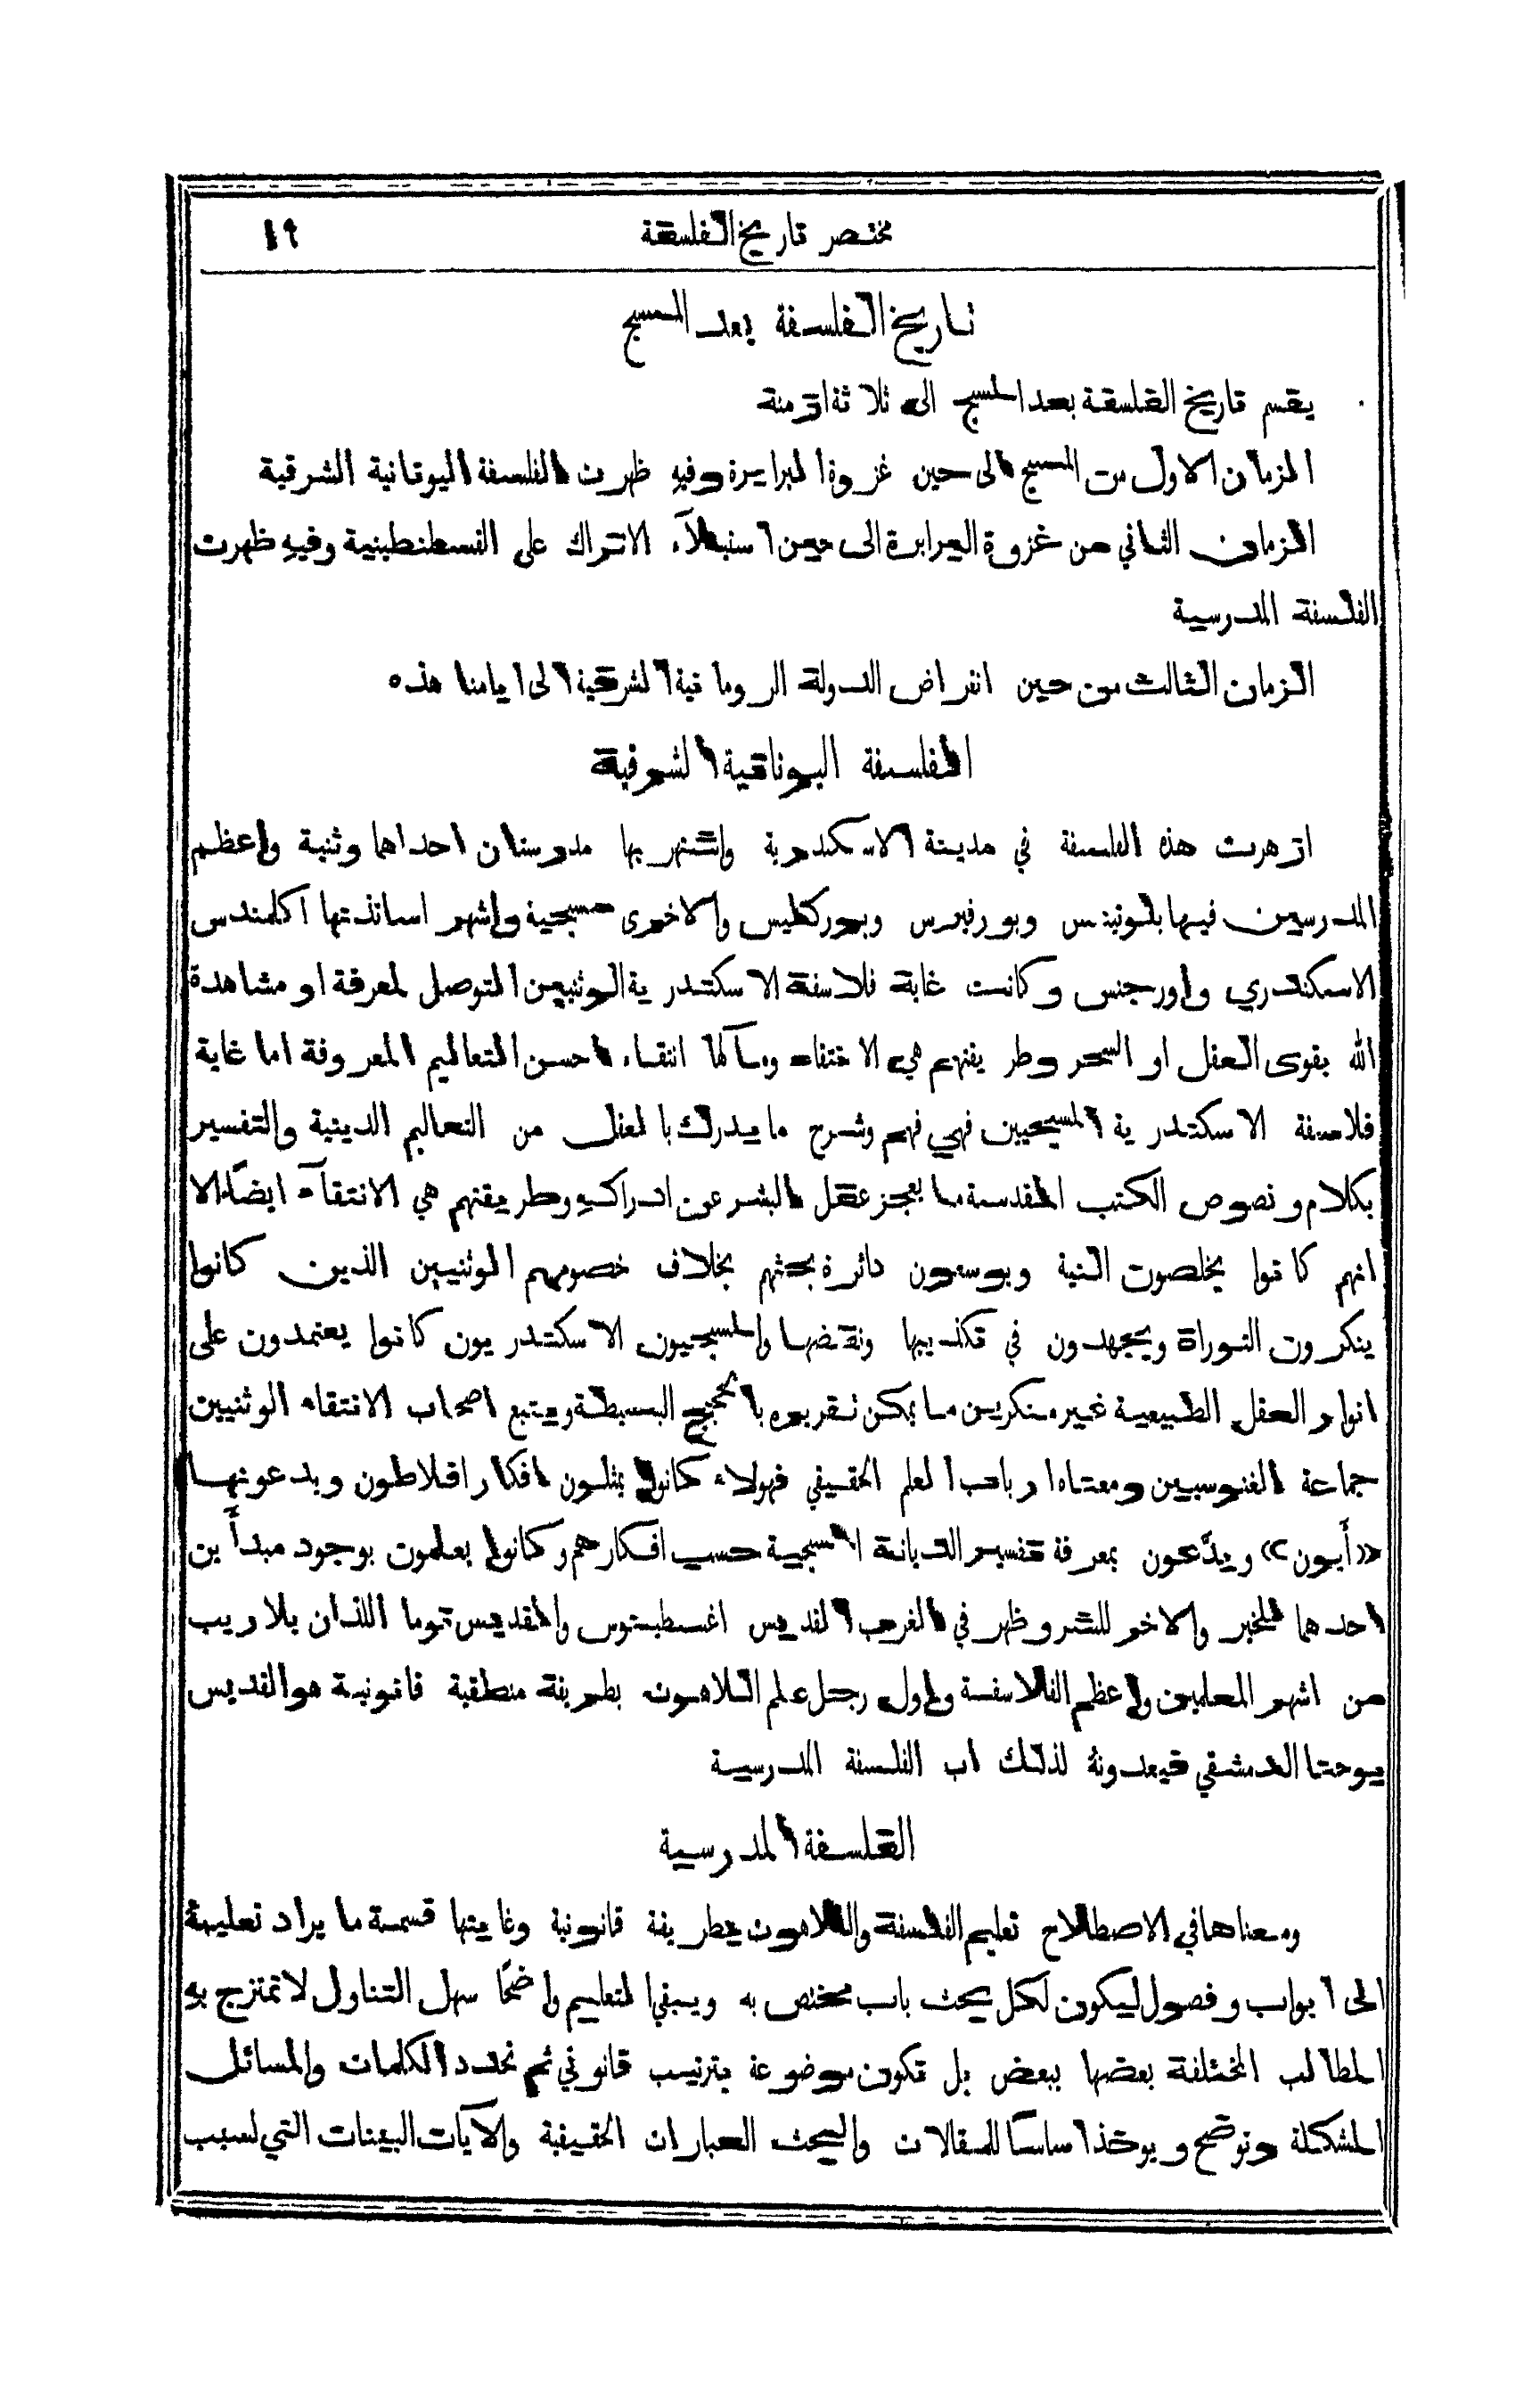 مختصر تاريخ الفلسفة ١٩
تاريخ الفلسفة بعد المسيح
يقسم تاريخ الفلسفة بعد المسيح الى ثلاثة ازمنة
الزمان الاول من المسيح الى حين غزوة البرابرة وفيهِ ظهرت الفلسفة اليونانية الشرقية
الزمان الثاني من غزوة البرابرة الى حين استيلآء الاتراك على القسطنطينية وفيهِ ظهرت
الفلسفة المدرسية
الزمان الثالث من حين انقراض الدولة الرومانية الشرقية الى ايامنا هذه
الفلسفة اليونانية الشرقية
ازهرت هذه الفلسفة في مدينة الاسكندرية واشتهر بها مدرستان احداها وثنية واعظم
المدرسين فيها بلوتينس وبورفيرس وبوركليس والاخرى مسيحية واشهر اساتذتها اكلمندس
الاسكندري واورجنس وكانت غاية فلاسفة الاسكندرية الوثنيين التوصل لمعرفة او مشاهدة
الله بقوى العقل او السحر وطريقتهم هي الاختفاء ومآلها انتقاء احسن التعاليم المعروفة اما غاية
فلاسفة الاسكندرية المسيحيين فهي فهم وشرح ما يدرك بالعقل من التعاليم الدينية والتفسير
بكلام ونصوص الكتب المقدسة ما يعجز عقل البشر عن ادراكهِ وطريقتهم هي الانتقآء ايضًا الا
انهم كانوا يخلصون النية ويوسعون دائرة بحثهم بخلاف خصومهم الوثنيين الذين كانوا
ينكرون التوراة ويجهدون في تكذيبها ونقضها والمسيحيون الاسكندريون كانوا يعتمدون على
انوار العقل الطبيعية غير منكرين ما يمكن تقريره بالحجج البسيطة ويتبع اصحاب الانتقاء الوثنيين
جماعة الغنوسيين ومعناه ارباب العلم الحقيقي فهولاء كانوا يمثلون افكار افلاطون ويدعونها
«أَيون» ويدَّعون بمعرفة تفسير الديانة المسيحية حسب افكارهم وكانوا يعلمون بوجود مبدأَين
احدهما للخير والاخر للشر وظهر في الغرب القديس اغسطينوس والقديس توما اللذان بلا ريب
من اشهر المعلمين واعظم الفلاسفة واول رجل علم اللاهوت بطريقة منطقية قانونية هو القديس
يوحنا الدمشقي فيعدونهُ لذلك اب الفلسفة المدرسية
الفلسفة المدرسية
ومعناها في الاصطلاح تعليم الفلسفة واللاهوت بطريقة قانونية وغايتها قسمة ما يراد تعليمهُ
الى ابواب وفصول ليكون لكل بحث باب مختص به ويبقى التعليم واضحًا سهل التناول لا تمتزج بهِ
المطالب المختلفة بعضها ببعض بل تكون موضوعة بترتيب قانوني ثم تحدد الكلمات والمسائل
المشكلة وتوضح ويوخذ اساسًا للمقالات والبحث العبارات الحقيقية والآيات البينات التي لسبب